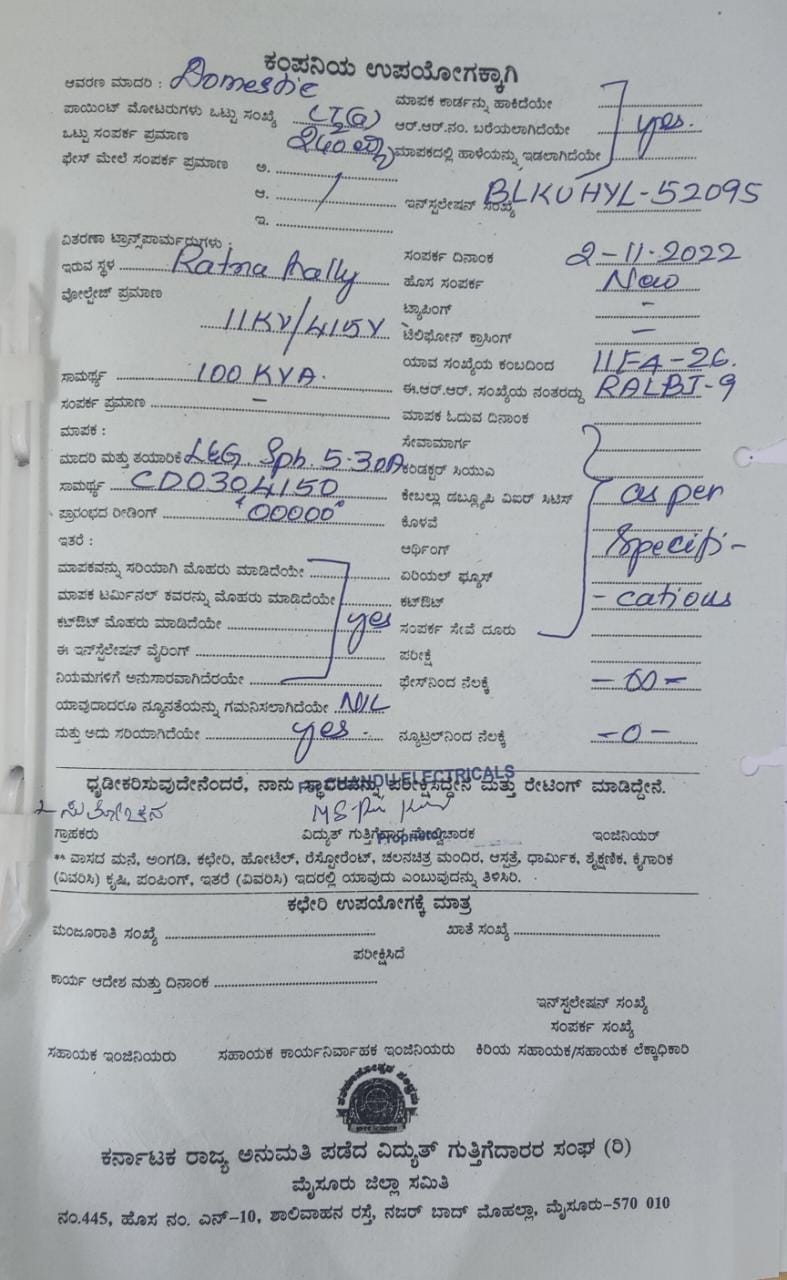 ಕಂಪನಿಯ ಉಪಯೋಗಕ್ಕಾಗಿ
ಆವರಣ ಮಾದರಿ : Domestic
ಮಾಪಕ ಕಾರ್ಡನ್ನು ಹಾಕಿದೆಯೇ
ಪಾಯಿಂಟ್ ಮೋಟರುಗಳು ಒಟ್ಟು ಸಂಖ್ಯೆ
ಆರ್.ಆರ್.ನಂ. ಬರೆಯಲಾಗಿದೆಯೇ yes.
ಒಟ್ಟು ಸಂಪರ್ಕ ಪ್ರಮಾಣ
ಮಾಪಕದಲ್ಲಿ ಹಾಳೆಯನ್ನು ಇಡಲಾಗಿದೆಯೇ
ಫೇಸ್ ಮೇಲೆ ಸಂಪರ್ಕ ಪ್ರಮಾಣ ಅ.
ಆ.
ಇನ್‌ಸ್ಟಲೇಷನ್ ಸಂಖ್ಯೆ BLKUHYL-52095
ಇ.
ವಿತರಣಾ ಟ್ರಾನ್ಸ್‌ಪಾರ್ಮರುಗಳು :
ಸಂಪರ್ಕ ದಿನಾಂಕ 2-11-2022
ಇರುವ ಸ್ಥಳ Ratna hally
ಹೊಸ ಸಂಪರ್ಕ New
ವೋಲ್ಟೇಜ್ ಪ್ರಮಾಣ 11KV/415V
ಟ್ಯಾಪಿಂಗ್ -
ಟೆಲಿಫೋನ್ ಕ್ರಾಸಿಂಗ್ -
ಯಾವ ಸಂಖ್ಯೆಯ ಕಂಬದಿಂದ 11FA-26.
ಸಾಮರ್ಥ್ಯ 100 KVA.
ಈ.ಆರ್.ಆರ್. ಸಂಖ್ಯೆಯ ನಂತರದ್ದು RALBJ-9
ಸಂಪರ್ಕ ಪ್ರಮಾಣ -
ಮಾಪಕ ಓದುವ ದಿನಾಂಕ
ಮಾಪಕ :
ಸೇವಾಮಾರ್ಗ
ಮಾದರಿ ಮತ್ತು ತಯಾರಿಕೆ L&G. Sph. 5-30A
ಕಂಡಕ್ಟರ್ ಸಿಯುಎ
ಸಾಮರ್ಥ್ಯ CD0304150
ಕೇಬಲ್ಲು ಡಬ್ಲ್ಯೂಪಿ ವಿಐರ್ ಸಿಟಿಸ್ as per
ಪ್ರಾರಂಭದ ರೀಡಿಂಗ್ "00000"
ಕೊಳವೆ
ಇತರೆ :
ಆರ್ಥಿಂಗ್ Specifi-
ಮಾಪಕವನ್ನು ಸರಿಯಾಗಿ ಮೊಹರು ಮಾಡಿದೆಯೇ
ಏರಿಯಲ್ ಫ್ಯೂಸ್
ಮಾಪಕ ಟರ್ಮಿನಲ್ ಕವರನ್ನು ಮೊಹರು ಮಾಡಿದೆಯೇ
ಕಟ್‌ಔಟ್ - cations
ಕಟ್‌ಔಟ್ ಮೊಹರು ಮಾಡಿದೆಯೇ yes
ಸಂಪರ್ಕ ಸೇವೆ ದೂರು
ಈ ಇನ್‌ಸ್ಟಲೇಷನ್ ವೈರಿಂಗ್
ಪರೀಕ್ಷೆ
ನಿಯಮಗಳಿಗೆ ಅನುಸಾರವಾಗಿದೆರಯೇ
ಫೇಸ್‌ನಿಂದ ನೆಲಕ್ಕೆ - ∞ -
ಯಾವುದಾದರೂ ನ್ಯೂನತೆಯನ್ನು ಗಮನಿಸಲಾಗಿದೆಯೇ NIL
ಮತ್ತು ಅದು ಸರಿಯಾಗಿದೆಯೇ yes
ನ್ಯೂಟ್ರಲ್‌ನಿಂದ ನೆಲಕ್ಕೆ -0-
ಧೃಡೀಕರಿಸುವುದೇನೆಂದರೆ, ನಾನು ಸ್ಥಾವರವನ್ನು ಪರೀಕ್ಷಿಸಿದ್ದೇನೆ ಮತ್ತು ರೇಟಿಂಗ್ ಮಾಡಿದ್ದೇನೆ.
ELECTRICALS
ಸುಲೋಚನ
ಗ್ರಾಹಕರು
ವಿದ್ಯುತ್ ಗುತ್ತಿಗೆದಾರ ಮೇಲ್ವಿಚಾರಕ
Proprietor
ಇಂಜಿನಿಯರ್
** ವಾಸದ ಮನೆ, ಅಂಗಡಿ, ಕಛೇರಿ, ಹೋಟೆಲ್, ರೆಸ್ಟೋರೆಂಟ್, ಚಲನಚಿತ್ರ ಮಂದಿರ, ಆಸ್ಪತ್ರೆ, ಧಾರ್ಮಿಕ, ಶೈಕ್ಷಣಿಕ, ಕೈಗಾರಿಕೆ
(ವಿವರಿಸಿ) ಕೃಷಿ, ಪಂಪಿಂಗ್, ಇತರೆ (ವಿವರಿಸಿ) ಇದರಲ್ಲಿ ಯಾವುದು ಎಂಬುವುದನ್ನು ತಿಳಿಸಿರಿ.
ಕಛೇರಿ ಉಪಯೋಗಕ್ಕೆ ಮಾತ್ರ
ಮಂಜೂರಾತಿ ಸಂಖ್ಯೆ
ಖಾತೆ ಸಂಖ್ಯೆ
ಪರೀಕ್ಷಿಸಿದೆ
ಕಾರ್ಯ ಆದೇಶ ಮತ್ತು ದಿನಾಂಕ
ಇನ್‌ಸ್ಟಲೇಷನ್ ಸಂಖ್ಯೆ
ಸಂಪರ್ಕ ಸಂಖ್ಯೆ
ಸಹಾಯಕ ಇಂಜಿನಿಯರು
ಸಹಾಯಕ ಕಾರ್ಯನಿರ್ವಾಹಕ ಇಂಜಿನಿಯರು
ಕಿರಿಯ ಸಹಾಯಕ/ಸಹಾಯಕ ಲೆಕ್ಕಾಧಿಕಾರಿ
ಕರ್ನಾಟಕ ರಾಜ್ಯ ಅನುಮತಿ ಪಡೆದ ವಿದ್ಯುತ್ ಗುತ್ತಿಗೆದಾರರ ಸಂಘ (ರಿ)
ಮೈಸೂರು ಜಿಲ್ಲಾ ಸಮಿತಿ
ನಂ.445, ಹೊಸ ನಂ. ಎನ್-10, ಶಾಲಿವಾಹನ ರಸ್ತೆ, ನಜರ್ ಬಾದ್ ಮೊಹಲ್ಲಾ, ಮೈಸೂರು-570 010